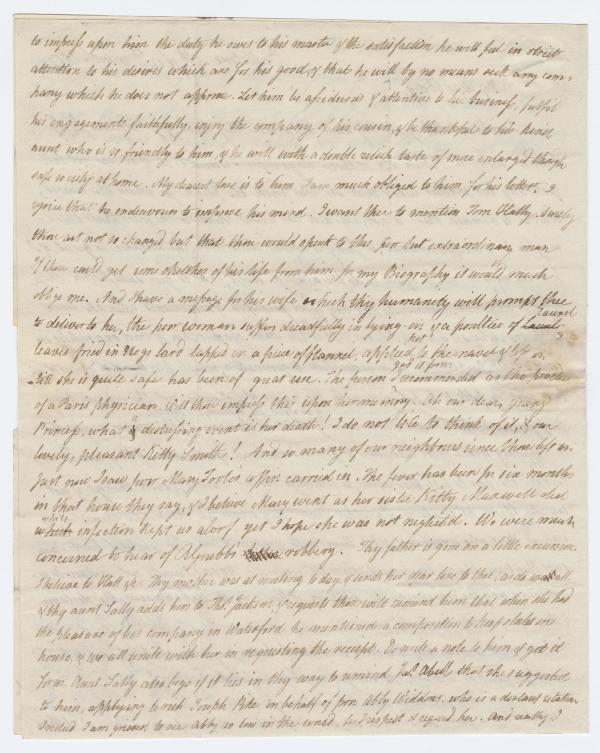 to impress upon him the duty he owes to his master & the satisfaction he will feel in strict
attention to his desires which are for his good, & that he will by no means seek any com-
pany which he does not approve. Let him be assiduous & attentive to his business, fulfil
his engagements faithfully, enjoy the company of his cousin, & be thankful to his dear
aunt who is so friendly to him, & he will with a double relish taste of more enlarged though
safe society at home. My dearest love is to him I am much obliged to him for his letter. I
rejoice that he endeavours to improve his mind. I want thee to mention Tom Flatly. Surely
thou art not so changed but that thou would speak to this poor but extraordinary man
If thou could get some sketches of his life from him for my Biography it would much
oblige me. And I have a message for his wife which thy humanity will prompt thee
to deliver to her, the poor woman suffers dreadfully in lying-in & a poultice of Laurel
leaves fried in Hogs lard lapped in a piece of flannel, applied hot to the navel & left on
till she is quite safe has been of great use. The person I got it from recommended as the practice
of a Paris physician. Wilt thou impress this upon her memory. Oh our dear, young
Princess, what a distressing event is her death! I do not like to think of it, & our
lovely, pleasant Kitty! And so many of our neighbours since thou left us.
Just now I saw poor Mary coffin carried in. The fever has been for six months
in that house they say, & I believe Mary went as her sister Kitty Maxwell did
while infection kept us aloof, yet I hope she was not neglected. We were much
concerned to hear of R Grubb's robbery. Thy father is gone on a little excursion
I believe to &c. Thy mother was at meeting to day, & sends her dear love to thee, as do we all.
& thy aunt Sally adds hers to Thos. Jackson, & requests thou wilt remind him that when she had
the pleasure of his company in Waterford he mentioned a composition to keep slates on
house, & we all unite with her in requesting the receipt. Do write a note to him & get it
for us. Aunt Sally also begs if it lies in thy way to remind Jas. Abell, that she suggested
to him, applying to rich Joseph Pike in behalf of poor Abby Widdows, who is a distant relation
Indeed I am grieved to see Abby so low in the world, for I respect & regard her. And really I